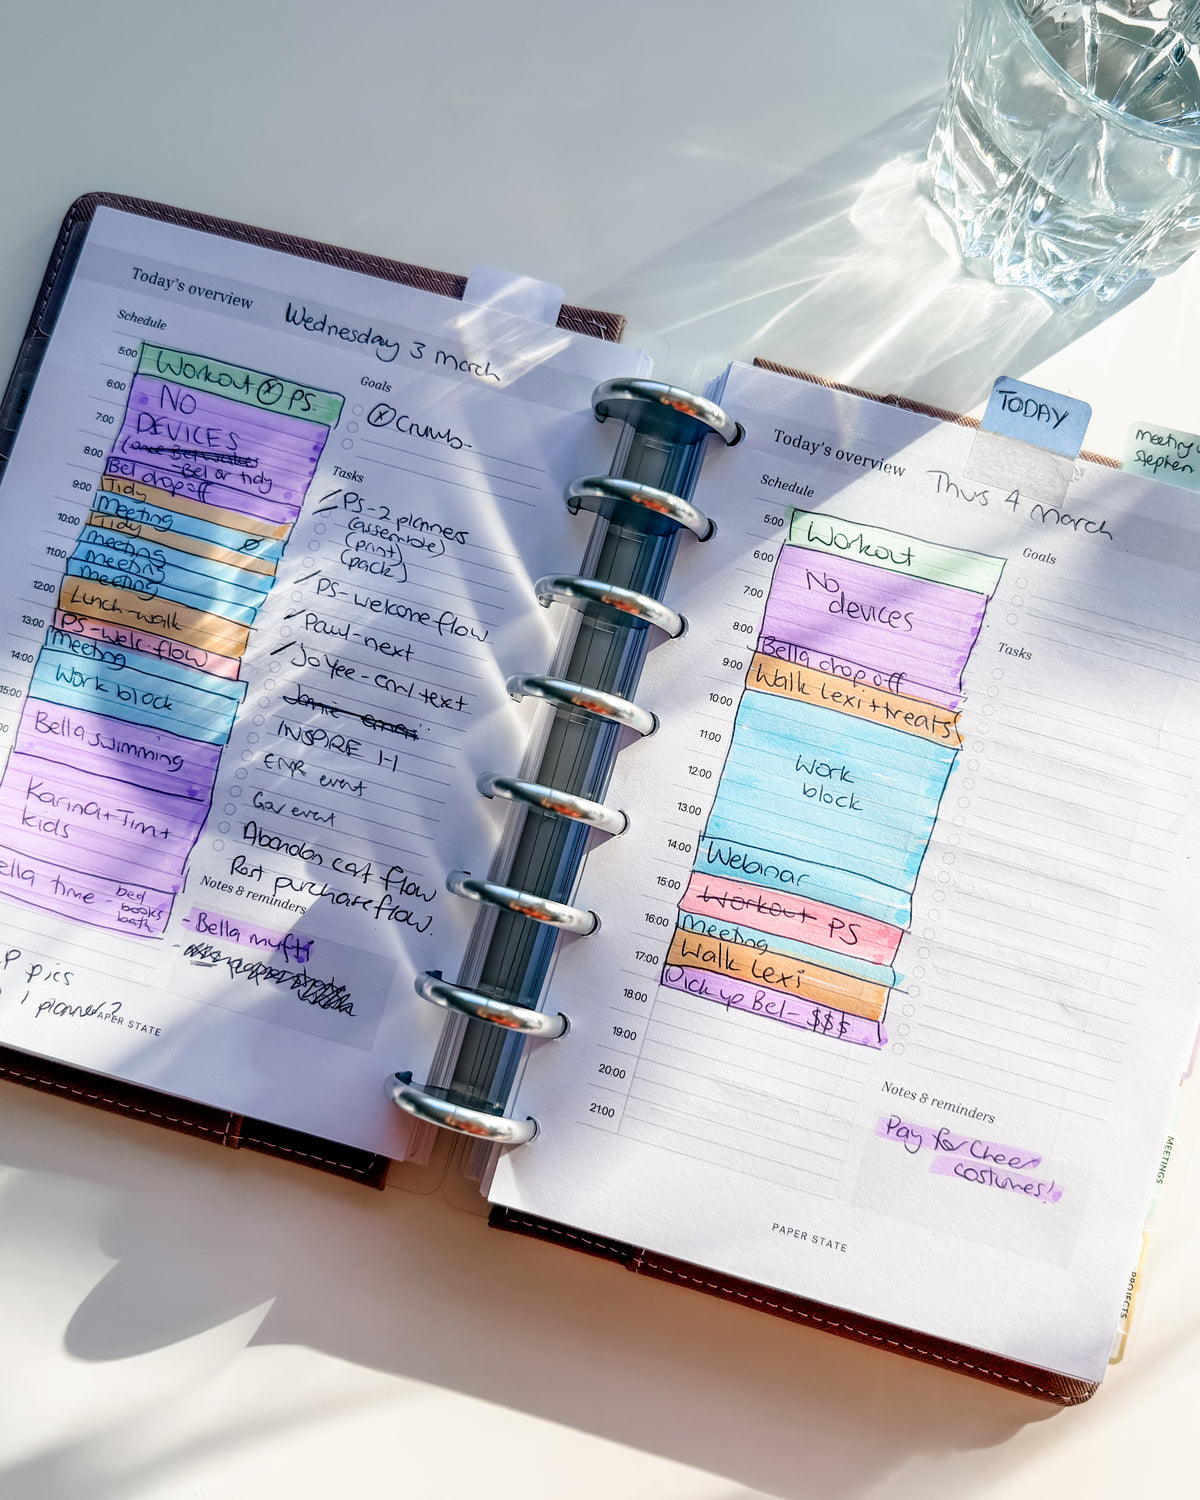 Today's overview
Wednesday 3 march
Schedule
5:00
6:00
7:00
8:00
9:00
10:00
11:00
12:00
13:00
14:00
15:00
Workout PS
NO
DEVICES
-Bel or tidy
Bel drop off
Tidy
Meeting
Tidy
meeting
meeting
meeting
Lunch-walk
PS-welc.flow
Meeting
Work block
Bella swimming
Karina+Tim+
kids
ella time
- bed
- books
bath
P pics
1 planner?
APER STATE
Goals
Crumb-
Tasks
PS-2 planners
(assemble)
(print)
(pack)
PS-welcome flow
Paul-next
Jo Yee-
text
INSPIRE 1-1
event
Gov event
Abandon cat flow
Post purchase flow.
Notes & reminders
- Bella mufti
TODAY
meeting
Stephen
Today's overview
Thus 4 march
Schedule
5:00
6:00
7:00
8:00
9:00
10:00
11:00
12:00
13:00
14:00
15:00
16:00
17:00
18:00
19:00
20:00
21:00
Workout
No
devices
Bella drop off
Walk Lexi+treats
Work
block
Webinar
Workout PS
Meeting
Walk Lexi
Pick up Bel- $$$
Goals
Tasks
Notes & reminders
Pay for Cheer
costumes!
PAPER STATE
MEETINGS
PROJECTS